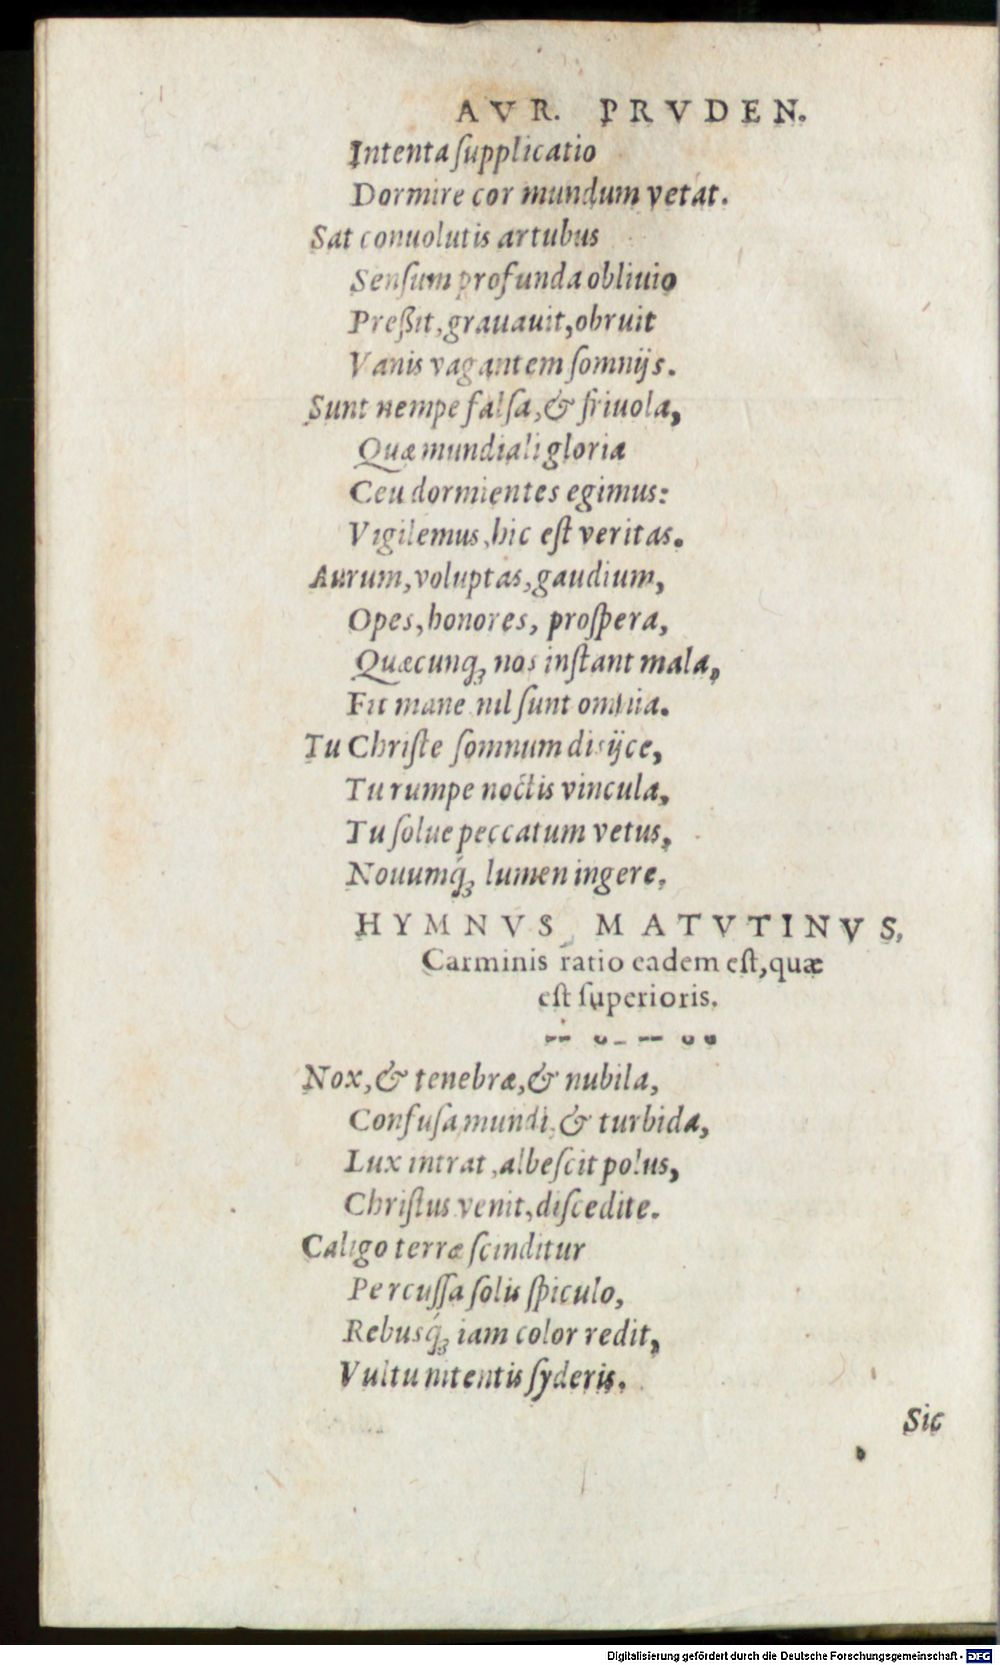 AVR. PRVDEN.
Intenta ſupplicatio
Dormire cor mundum vetat.
Sat conuolutis artubus
Senſum profunda obliuio
Preßit, grauauit, obruit
Vanis vagantem ſomnijs.
Sunt nempe falſa, & friuola,
Quæ mundiali gloria
Ceu dormientes egimus:
Vigilemus, hic eſt veritas.
Aurum, voluptas, gaudium,
Opes, honores, proſpera,
Quæcunq; nos inſtant mala,
Fit mane nil ſunt omnia.
Tu Chriſte ſomnum disijce,
Tu rumpe noctis vincula,
Tu ſolue peccatum vetus,
Nouumq́; lumen ingere.
HYMNVS MATVTINVS,
Carminis ratio eadem eſt, quæ
eſt ſuperioris.
-- ᴗ- -- ᴗᴗ
Nox, & tenebræ, & nubila,
Confuſa mundi, & turbida,
Lux intrat, albeſcit polus,
Chriſtus venit, diſcedite.
Caligo terræ ſcinditur
Percuſſa ſolis ſpiculo,
Rebusq́; iam color redit,
Vultu nitentis ſyderis.
Sic
Digitalisierung gefördert durch die Deutsche Forschungsgemeinschaft - DFG